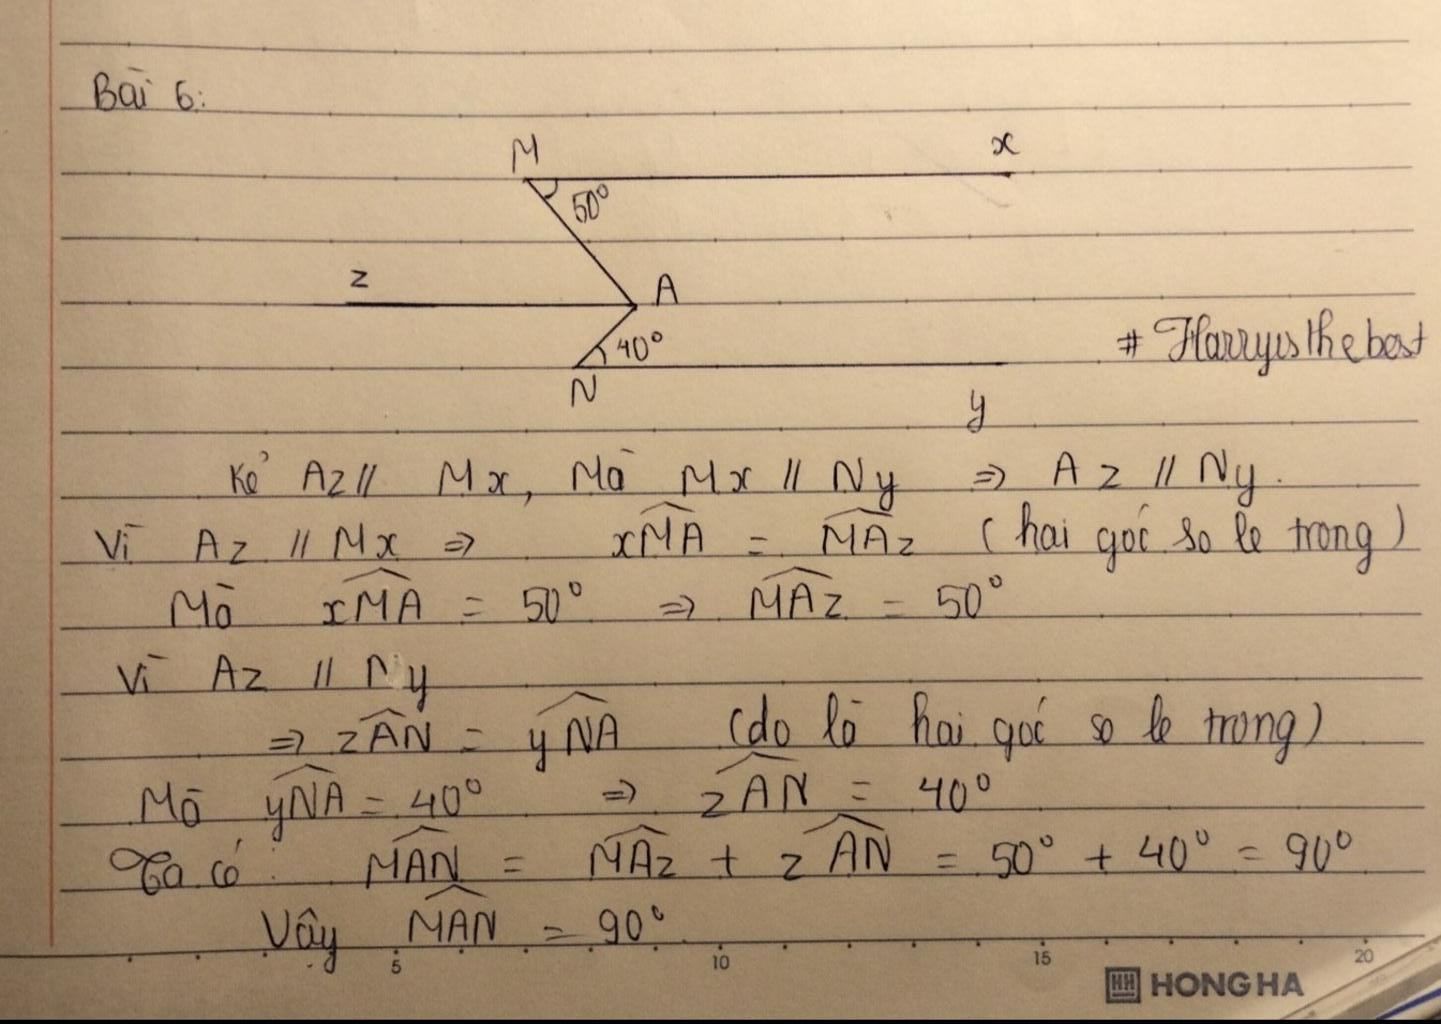 Bài 6:
M
x
50°
z
A
40°
# Harryisthebest
N
y
Kẻ Az // Mx, Mà Mx // Ny => Az // Ny.
Vì Az // Mx => xMA = MAz (hai góc so le trong)
Mà xMA = 50° => MAz = 50°
Vì Az // Ny
=> zAN = yNA (do là hai góc so le trong)
Mà yNA = 40° => zAN = 40°
Ta có: MAN = MAz + zAN = 50° + 40° = 90°
Vậy MAN = 90°
5 10 15 20
HH HONG HA